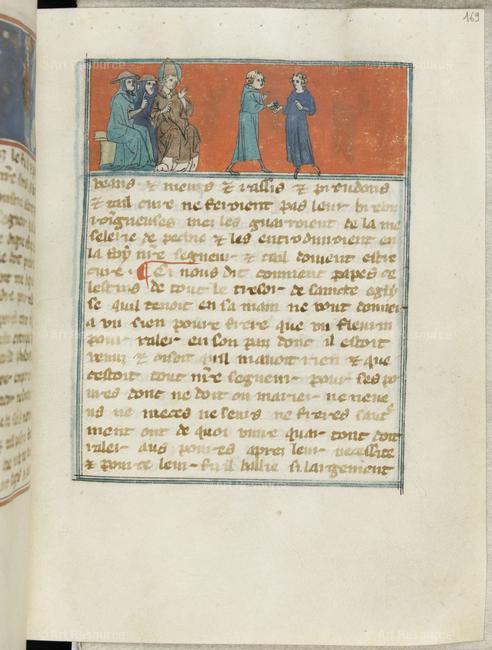 169
beaus & nieus & rassis & preudons
& tail cure ne feroient pas leur brebis
roigneuses mes les gueriroient de la me
selerie de pechie & les entroduiroient en
la foy nr̄e segneur & tail doivent estre
cure. Ci nous dit comment papes ce
lestins de tout le tresor de saincte eglis
se quil tenoit en sa main ne vout donner
a vn sien poure frere que vn fleurin
pour raler en son pais dont il estoit
venu & disoit quil nauoit rien & que
cestoit tout nr̄e segneur pour ses po
ures dont ne doit on marier ne neueus
ne nieces ne seurs ne freres
ment ont de quoi viure quar tout doit
raler aus poures apres leur necessite
& pour ce leur fu il baillie si largement